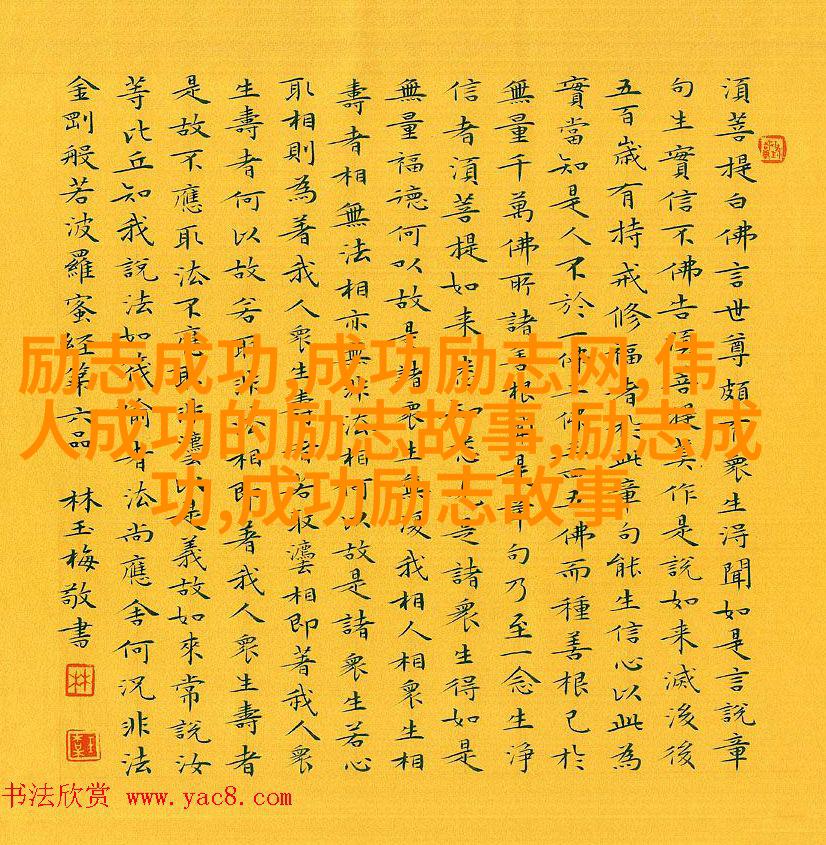 須菩提白佛言世尊頗有衆生淂聞如是言說章
句生實信不佛告須菩提莫作是說如来滅後後
五百嵗有持戒修福者於此章句能生信心以此為
實當知是人不於一佛二佛三四五佛而種善根已於
無量千萬佛所諸善根聞是章句乃至一念生净
信者須菩提如来悉知悉見是諸衆生得如是
無量福德何以故是諸衆生無復我相人相衆生相
壽者相無法相亦無非法相何以故是諸衆生若心
取相則為著我人衆生壽者若取灋相即著我人衆
生壽者何以故若取非法相即著我人衆生壽者
是故不應取法不應取非灋以是義故如來常說汝
等比丘知我說法如筏喻者法尚應舍何況非法
金剛般若波羅蜜经第六品 林玉梅敬書
林
励志成功,成功励志网,伟
人成功的励志故事,励志成
功,成功励志故事
书法欣赏 www.yac8.com